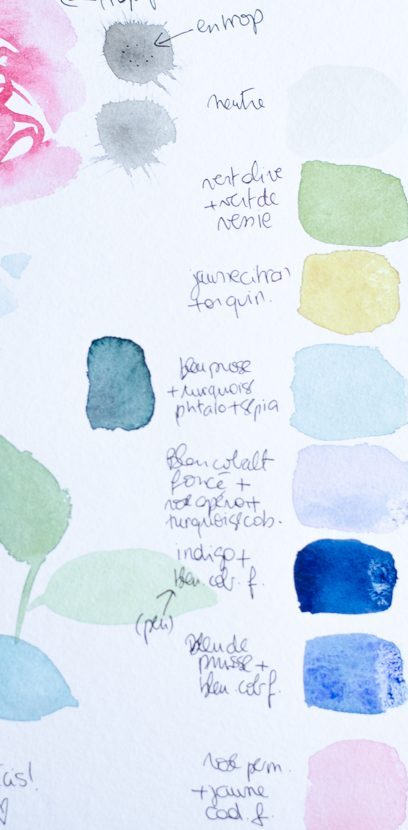 entrop
neutre
vert olive
+ vert de
vessie
jaune citron
+ or quin.
bleu prusse
+ turquoise
phtalo + sépia
Bleu cobalt
foncé +
rose opéra +
turquoise cob.
indigo +
bleu. cob. f.
(peu)
Bleu de
prusse +
bleu. cob f.
rose perm.
+ jaune
cad. f.